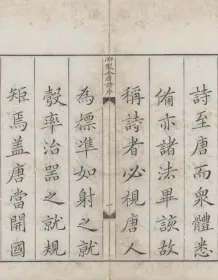 詩至唐而衆體悉
備亦諸法畢該故
稱詩者必視唐人
御製全唐詩序
一
為標準如射之就
彀率治器之就規
矩焉蓋唐當開國